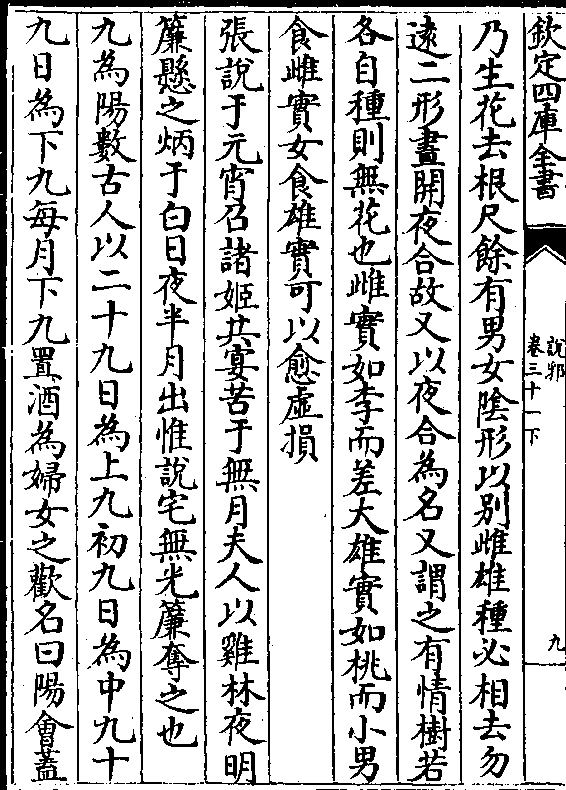 欽定四庫全書
說郛
卷三十一下
九
乃生花去根尺餘有男女陰形以別雌雄種必相去勿
遠二形晝開夜合故又以夜合為名又謂之有情樹若
各自種則無花也雌實如李而差大雄實如桃而小男
食雌實女食雄實可以愈虛損
張說于元宵召諸姬共宴苦于無月夫人以雞林夜明
簾懸之炳于白日夜半月出惟說宅無光簾奪之也
九為陽數古人以二十九日為上九初九日為中九十
九日為下九每月下九置酒為婦女之歡名曰陽會蓋